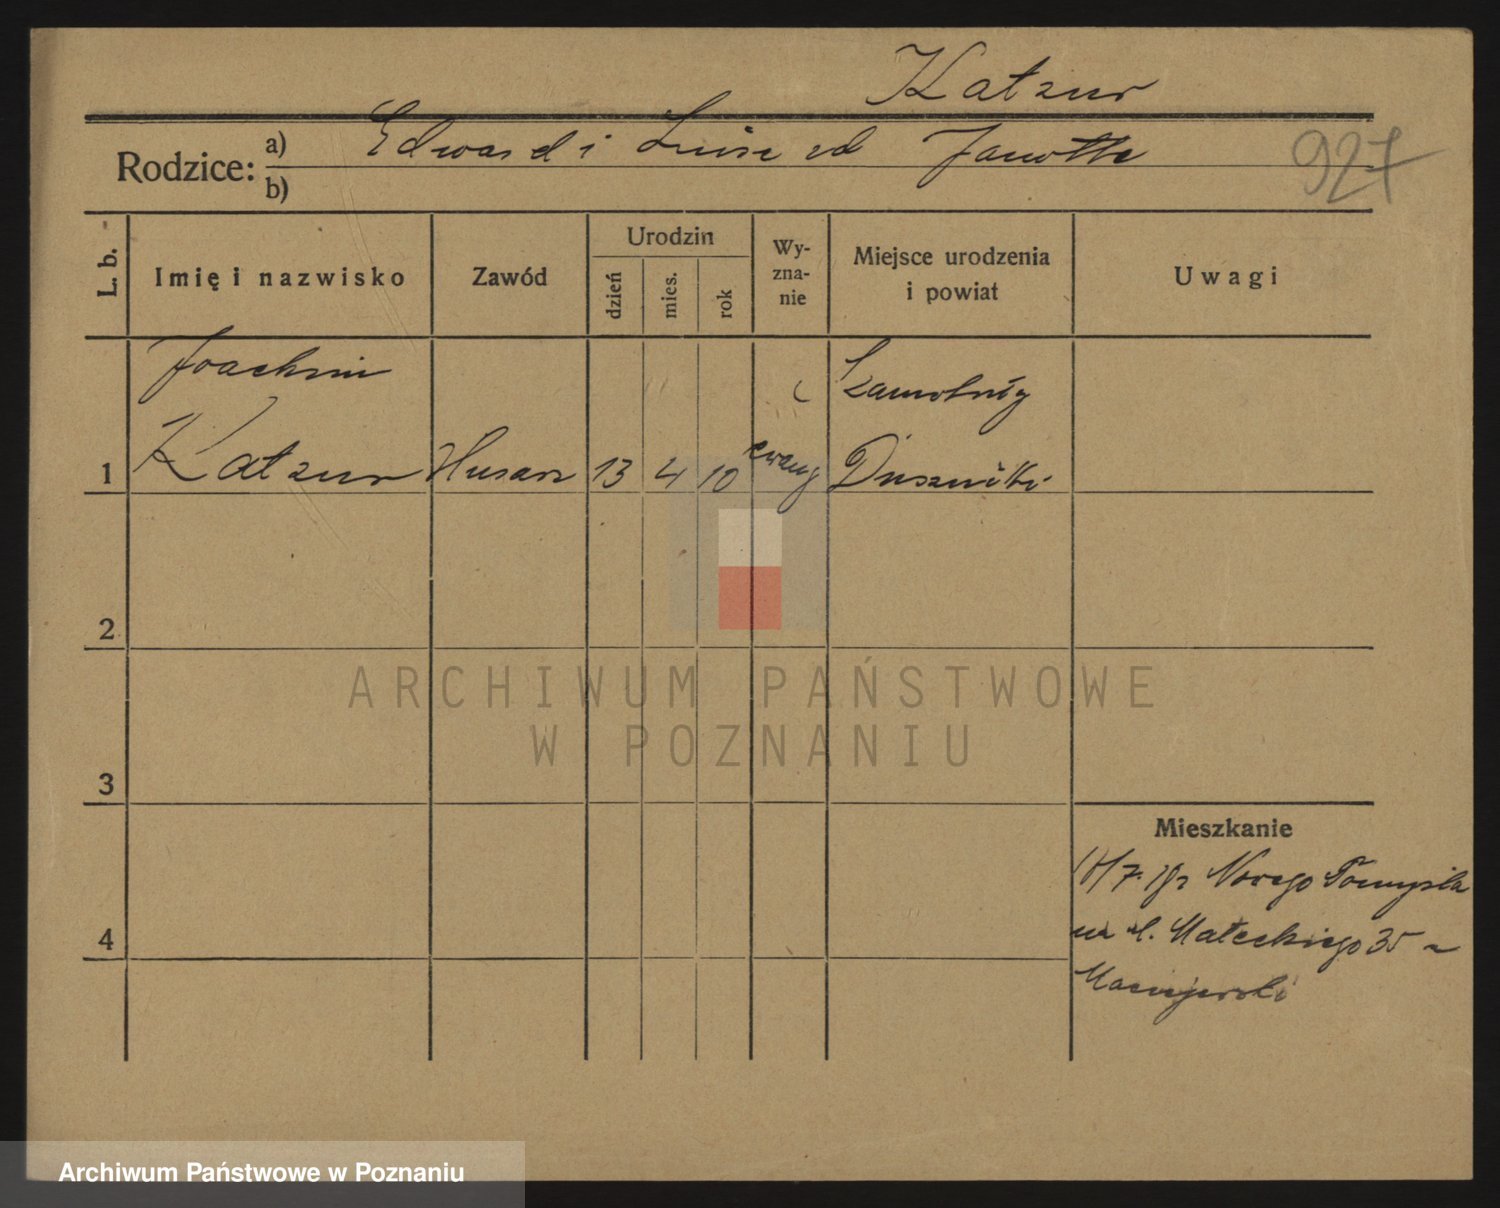 Katzur
Rodzice:
a) Edward i Luise zd Janotte
b)
927
L. b.
Imię i nazwisko
Zawód
Urodzin
dzień
mies.
rok
Wy-
zna-
nie
Miejsce urodzenia
i powiat
Uwagi
Joachim
Szamotuły
1 Katzur Husarz 13 4 10 ewang Duszniki
2
3
4
Mieszkanie
Nowego Tomyśla
Małeckiego 35
Maciejewski
ARCHIWUM PAŃSTWOWE
W POZNANIU
Archiwum Państwowe w Poznaniu